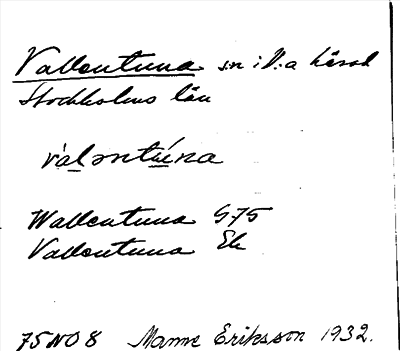 Vallentuna sn i V:a härad
Stockholms län
välǝntú̱na
Wallentuna G75
Vallentuna Ek
75NO8 Manne Eriksson 1932.